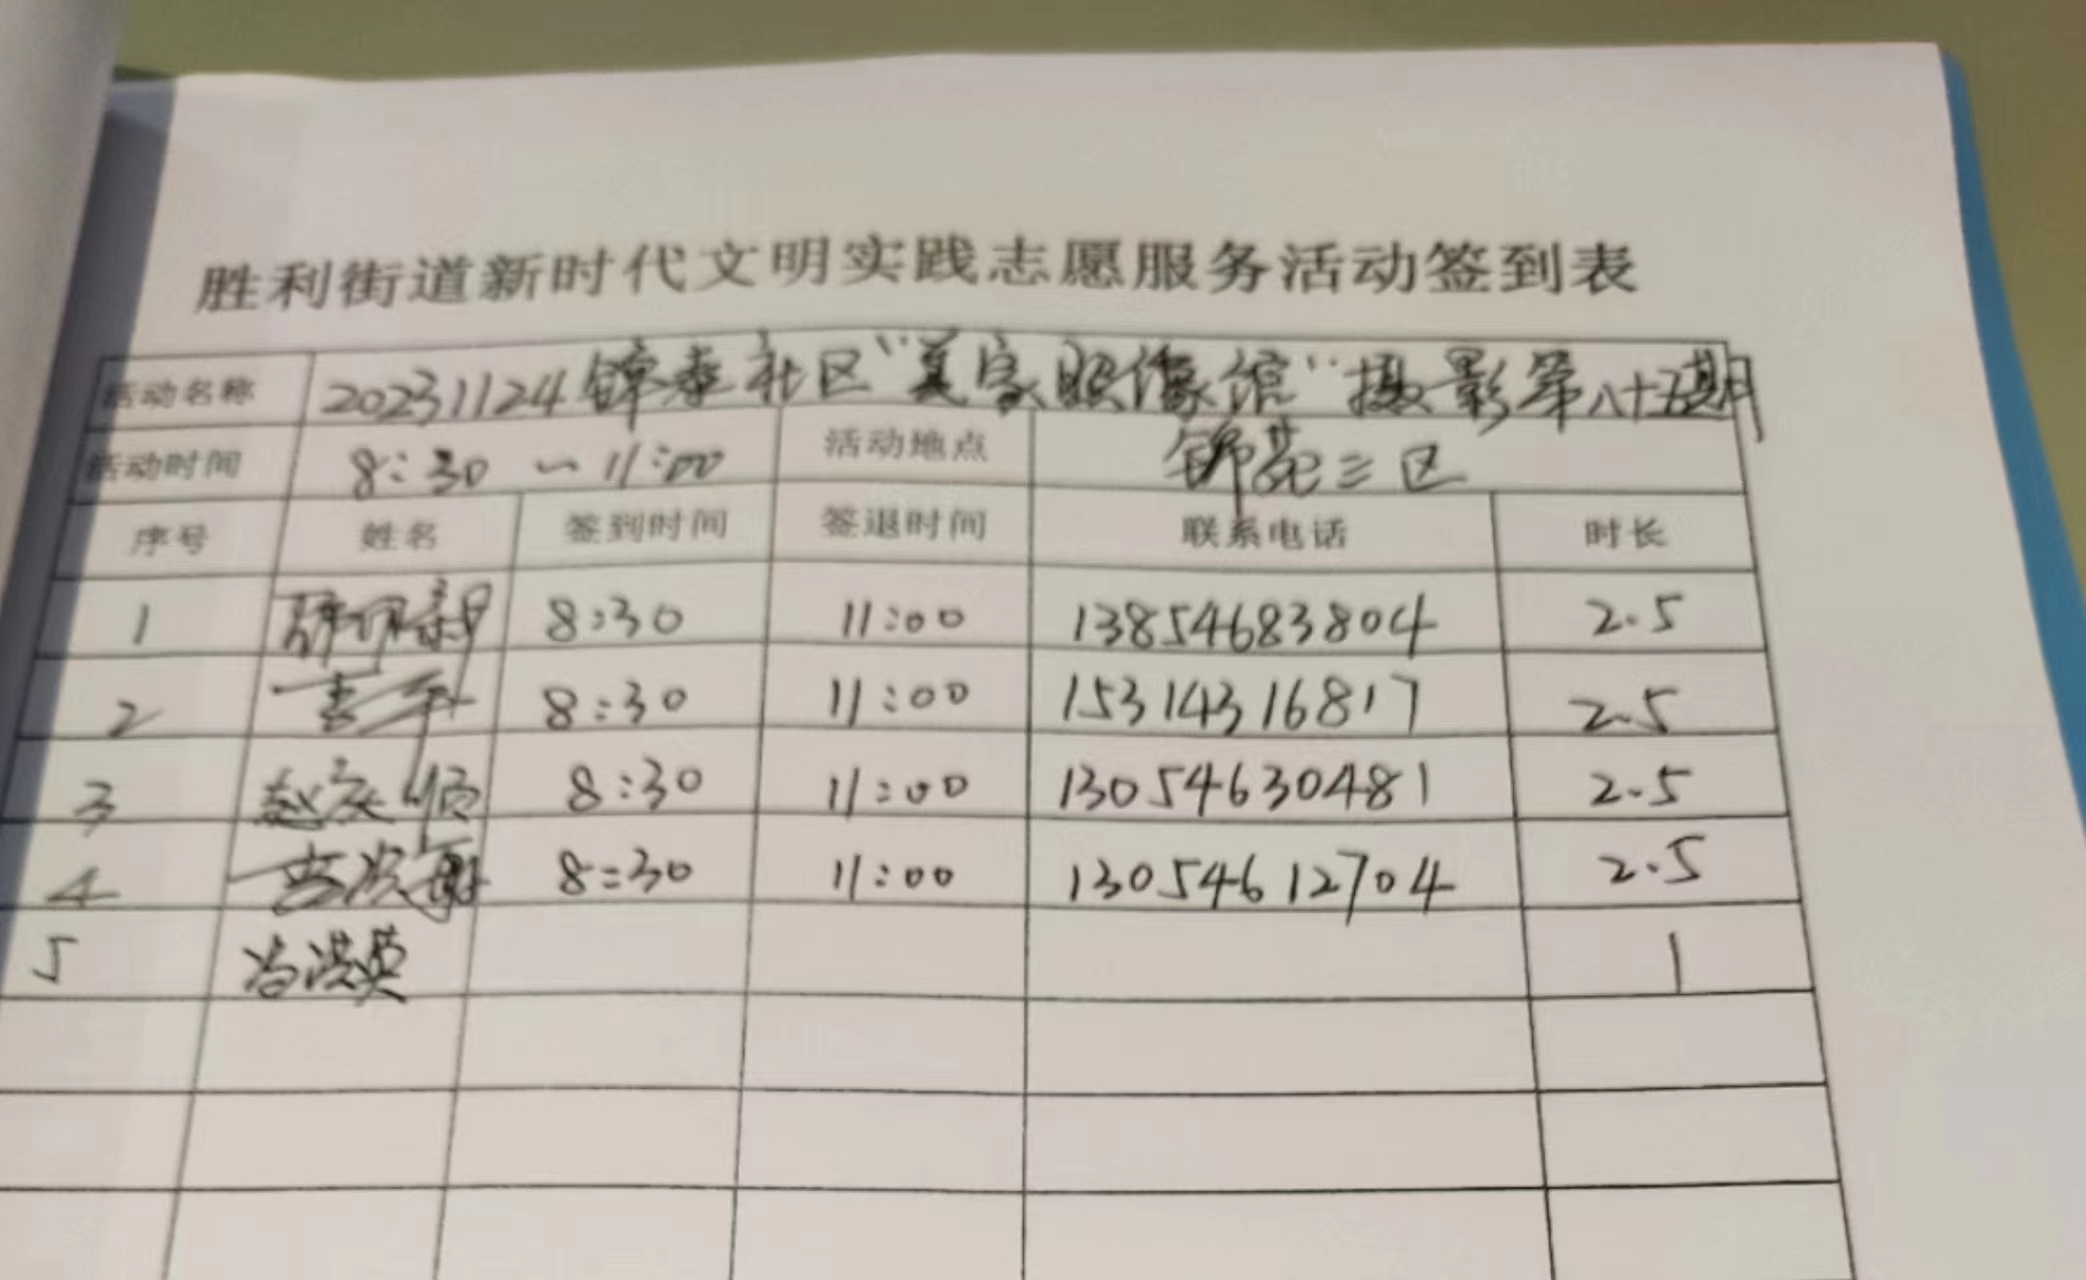 胜利街道新时代文明实践志愿服务活动签到表
活动名称 20231124锦泰社区“吴家照像馆”摄影第八十五期
活动时间 8:30 — 11:00 活动地点 锦苑三区
序号 姓名 签到时间 签退时间 联系电话 时长
1 8:30 11:00 13854683804 2.5
2 8:30 11:00 15314316817 2.5
3 赵庆顺 8:30 11:00 13054630481 2.5
4 8:30 11:00 13054612704 2.5
5 冯洪英 1